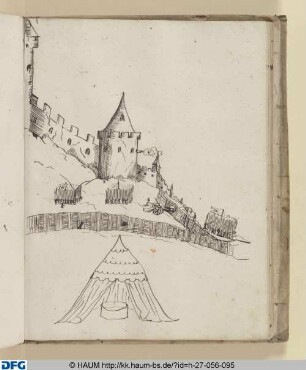 DFG
© HAUM http://kk.haum-bs.de/?id=h-27-056-095